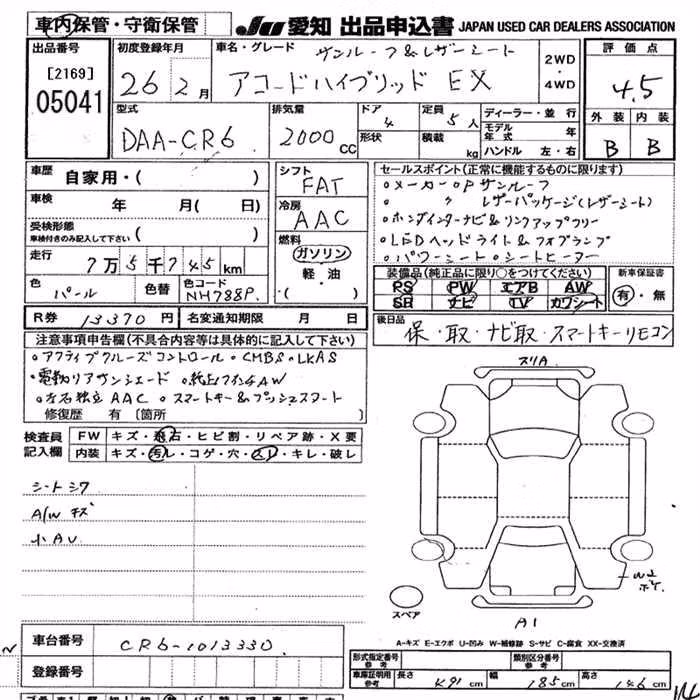 車内保管・守衛保管 JU 愛知 出品申込書 JAPAN USED CAR DEALERS ASSOCIATION
出品番号 初度登録年月 車名・グレード サンルーフ&レザーシート 2WD 評価点
[2169] 26年2月 アコードハイブリッド EX 4WD 4.5
05041 型式 排気量 ドア 4 定員 5人 ディーラー・並行 外装 内装
DAA-CR6 2000cc 形状 積載 kg モデル年式 年 B B
ハンドル 左・右
車歴 自家用・( ) シフト FAT セールスポイント(正常に機能するものに限ります)
車検 年 月( 日) 冷房 AAC ・メーカーOPサンルーフ
・ 〃 レザーパッケージ(レザーシート)
受検形態 車検付きのみ記入して下さい ( ) ・ホンダインターナビ&リンクアップフリー
燃料 ガソリン ・LEDヘッドライト&フォグランプ
走行 7万5千745km 軽・油 ・パワーシート・シートヒーター
色 パール 色替 色コード NH788P ・( ) 装備品(純正品に限り○をつけてください) 新車保証書
PS PW エアB AW 有・無
SR ナビ TV カワシート
R券 13370円 名変通知期限 月 日 後日品
保・取・ナビ取・スマートキーリモコン
注意事項申告欄(不具合内容等は具体的に記入して下さい)
・アクティブクルーズコントロール・CMBS・LKAS スリA
・電動リアサンシェード ・純正17インチAW
・左右独立AAC ・スマートキー&プッシュスタート
修復歴 有〔箇所
検査員記入欄 FW キズ・飛石・ヒビ割・リペア跡・X要
内装 キズ・汚レ・コゲ・穴・スレ・キレ・破レ
シートシワ
A/Wキズ
小AU
W2
ボケ
スペア A1
A-キズ E-エクボ U-凹み W-補修跡 S-サビ C-腐食 XX-交換済
車台番号 CR6-1013330 形式指定番号 参考 類別区分番号 参考
登録番号 車庫証明用参考 長さ 491cm 幅 185cm 高さ 146cm